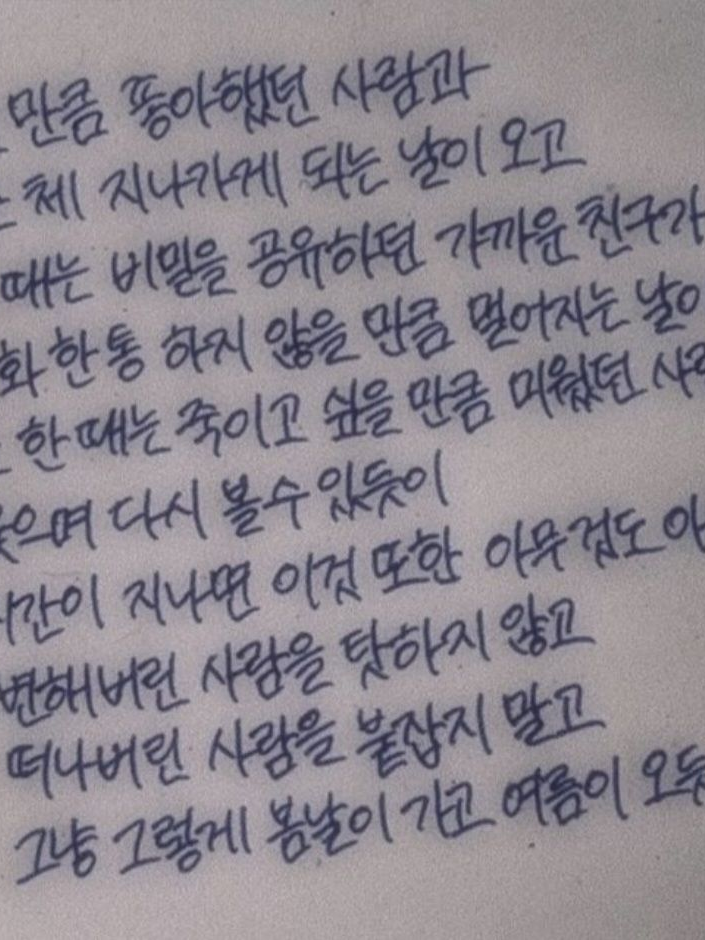 만큼 좋아했던 사람과
체 지나가게 되는 날이 오고
때는 비밀을 공유하던 가까운 친구가
화 한통 하지 않을 만큼 멀어지는 날이
한때는 죽이고 싶을 만큼 미웠던 사람
웃으며 다시 볼수 있듯이
시간이 지나면 이것 또한 아무것도 아
변해버린 사람을 탓하지 않고
떠나버린 사람을 붙잡지 말고
그냥 그렇게 봄날이 가고 여름이 오듯